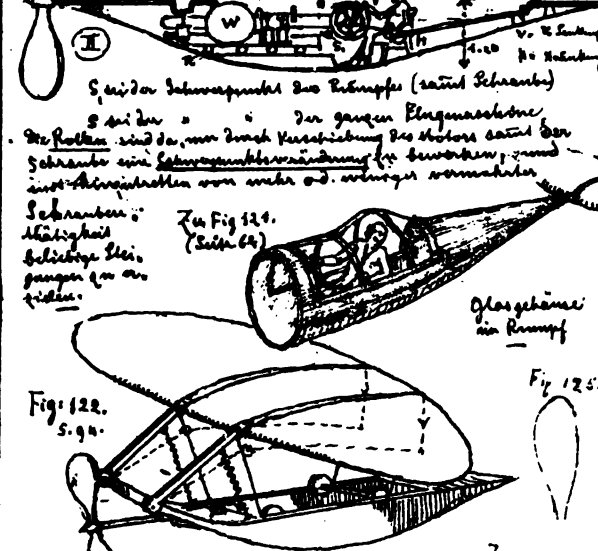 W
II
S, sei der Schwerpunkt des Rumpfes (samt Schraube)
S sei der " " der ganzen Flugmaschine
Die Rollen sind da, um durch Verschiebung des Motors samt der
Schraube eine Schwerpunktsveränderung zu bewirken, und
von mehr od. weniger vermehrter
Schrauben
thätigkeit
beliebige Stei-
gungen zu er-
zielen.
Zu Fig 121.
(Seite 64)
Glasgehäuse
im Rumpf
Fig: 122.
S. 94.
Fig 125.